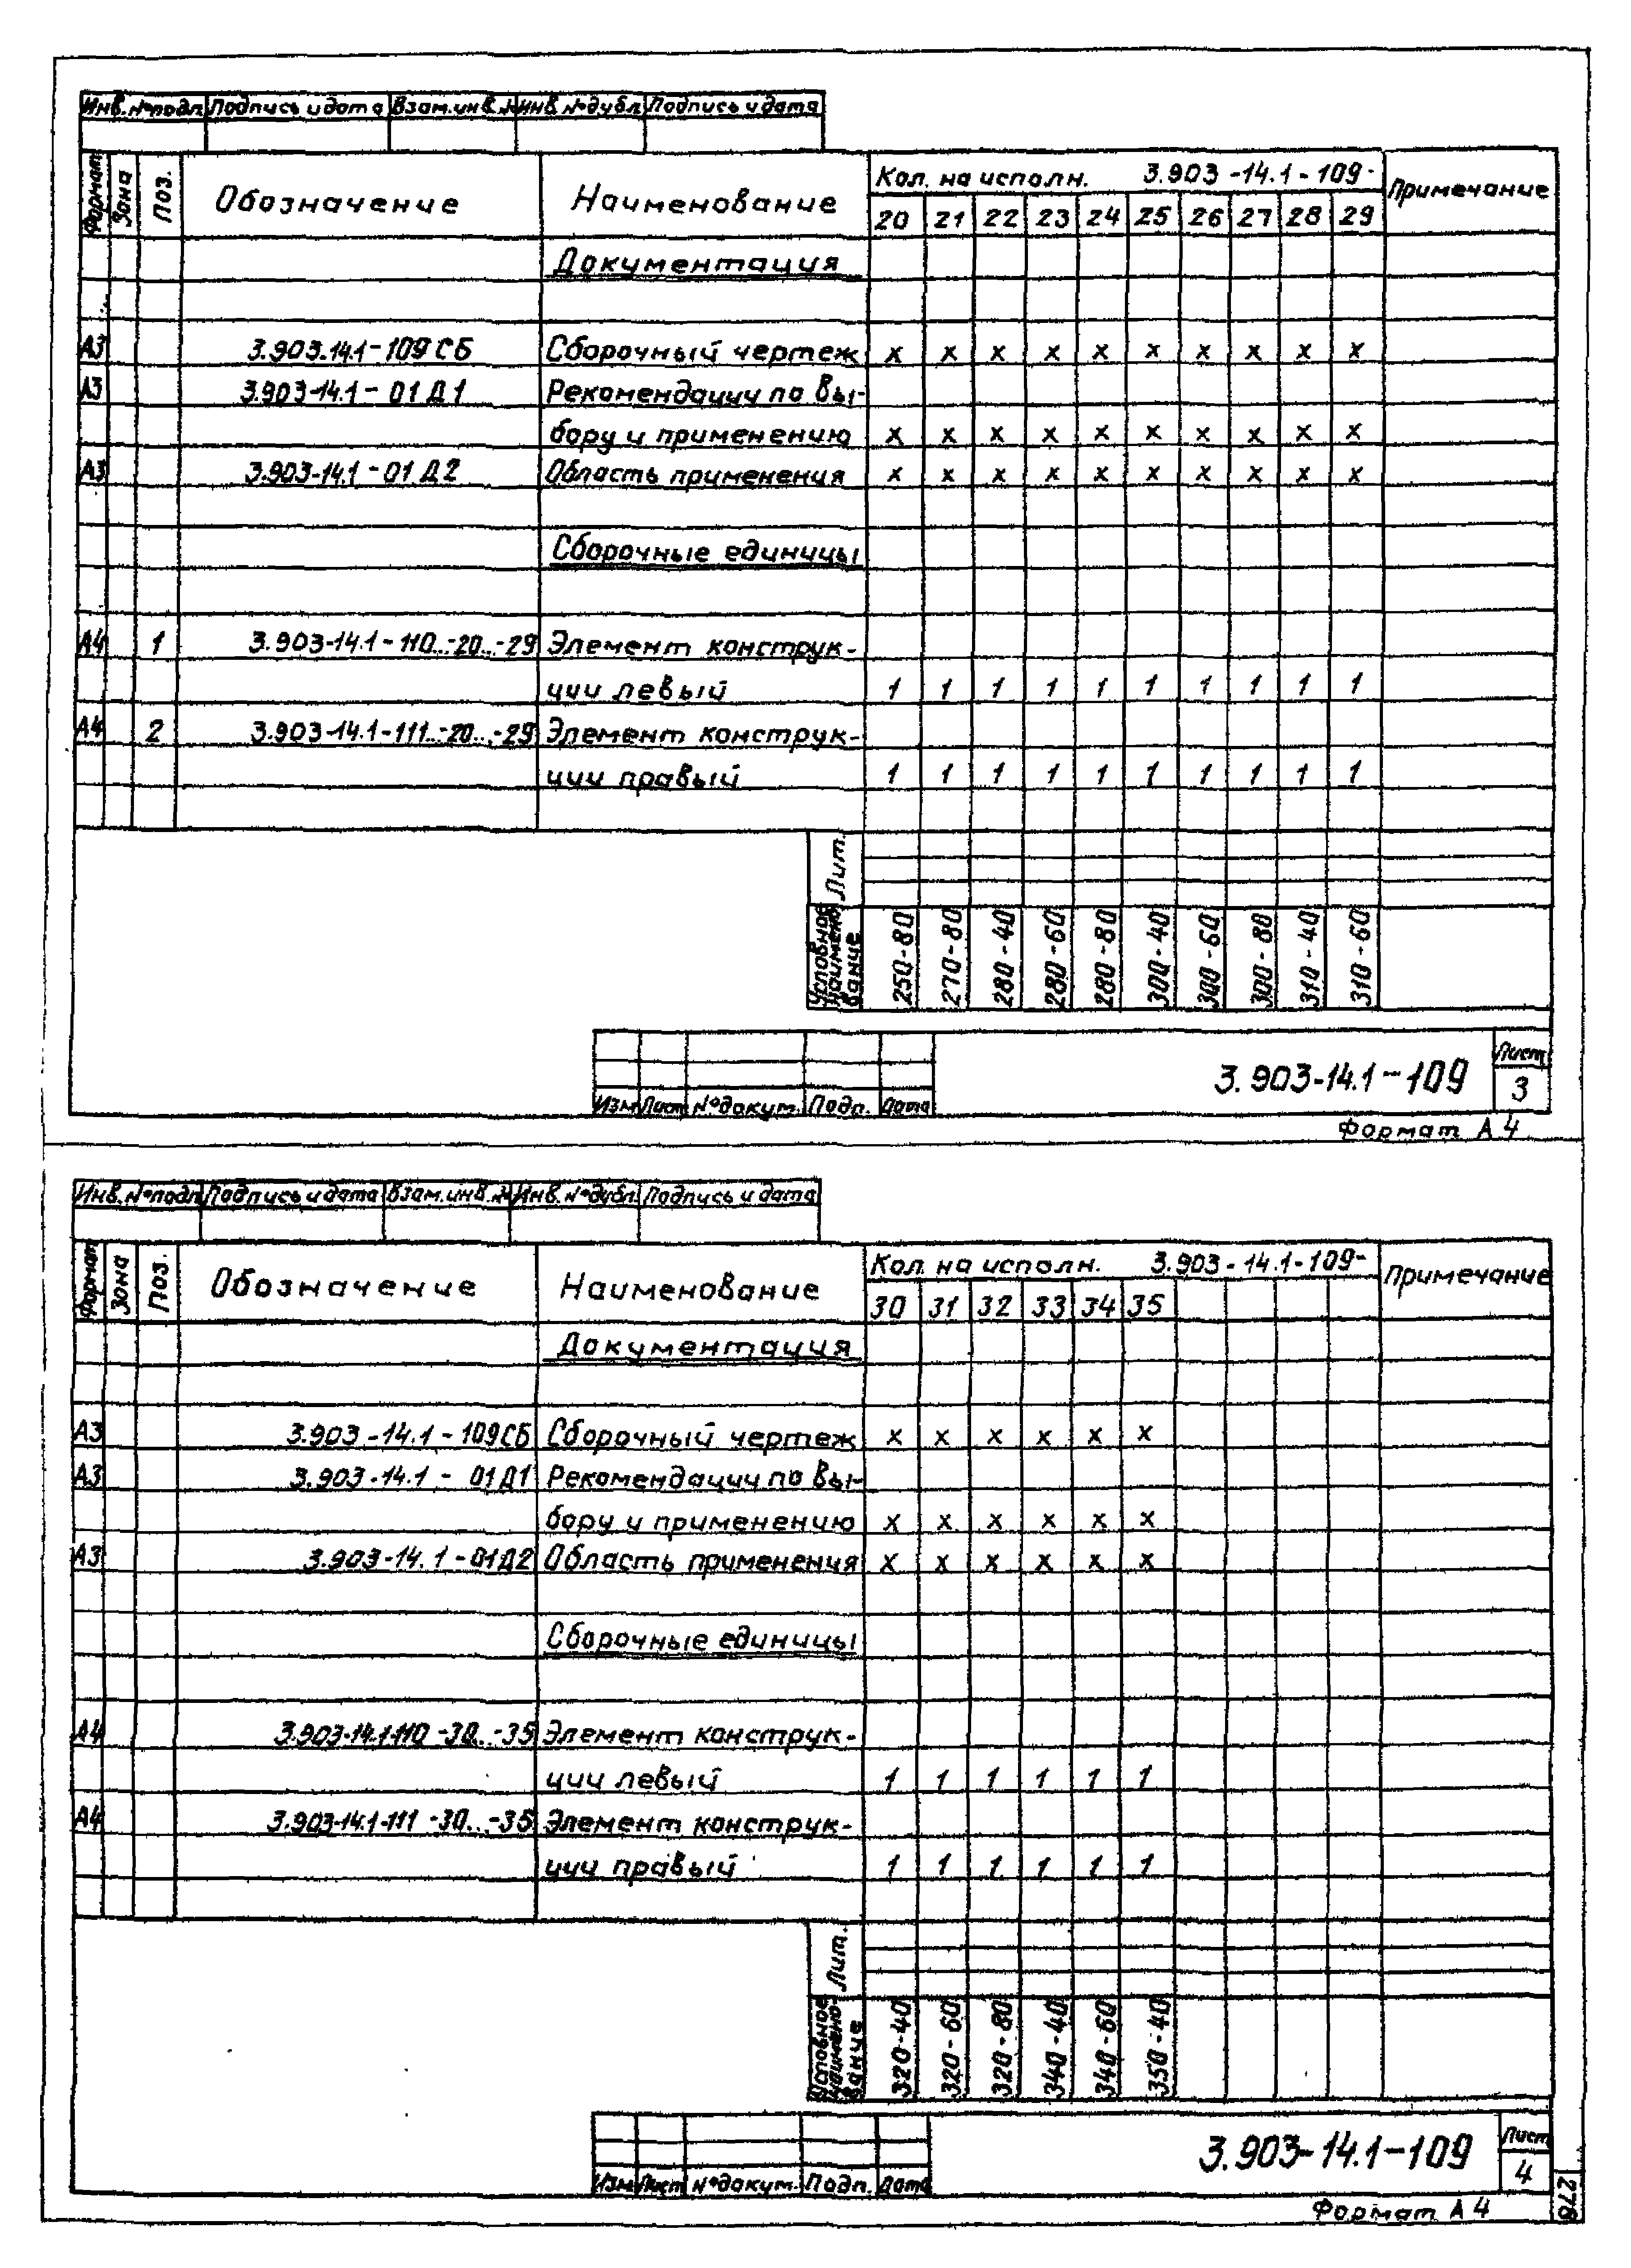 Инв.№подл. Подпись и дата Взам.инв.№ Инв.№дубл. Подпись и дата
Формат Зона Поз. Обозначение Наименование Кол. на исполн. 3.903-14.1-109- Примечание
20 21 22 23 24 25 26 27 28 29
Документация
А3 3.903.14.1-109 СБ Сборочный чертеж х х х х х х х х х х
А3 3.903-14.1-01 Д1 Рекомендации по вы-
бору и применению х х х х х х х х х х
А3 3.903-14.1-01 Д2 Область применения х х х х х х х х х х
Сборочные единицы
А4 1 3.903-14.1-110..-20..-29 Элемент конструк-
ции левый 1 1 1 1 1 1 1 1 1 1
А4 2 3.903-14.1-111..-20..-29 Элемент конструк-
ции правый 1 1 1 1 1 1 1 1 1 1
Лит.
Условное наимено-вание 250-80 270-80 280-40 280-60 280-80 300-40 300-60 300-80 310-40 310-60
Изм Лист №докум. Подп. Дата 3.903-14.1-109 Лист 3
Формат А4
Инв.№подл. Подпись и дата Взам.инв.№ Инв.№дубл. Подпись и дата
Формат Зона Поз. Обозначение Наименование Кол. на исполн. 3.903-14.1-109- Примечание
30 31 32 33 34 35
Документация
А3 3.903-14.1-109СБ Сборочный чертеж х х х х х х
А3 3.903-14.1-01Д1 Рекомендации по вы-
бору и применению х х х х х х
А3 3.903-14.1-01Д2 Область применения х х х х х х
Сборочные единицы
А4 3.903-14.1-110-30..-35 Элемент конструк-
ции левый 1 1 1 1 1 1
А4 3.903-14.1-111-30..-35 Элемент конструк-
ции правый 1 1 1 1 1 1
Лит.
Условное наимено-вание 320-40 320-60 320-80 340-40 340-60 350-40
Изм Лист №докум. Подп. Дата 3.903-14.1-109 Лист 4
Формат А4
276